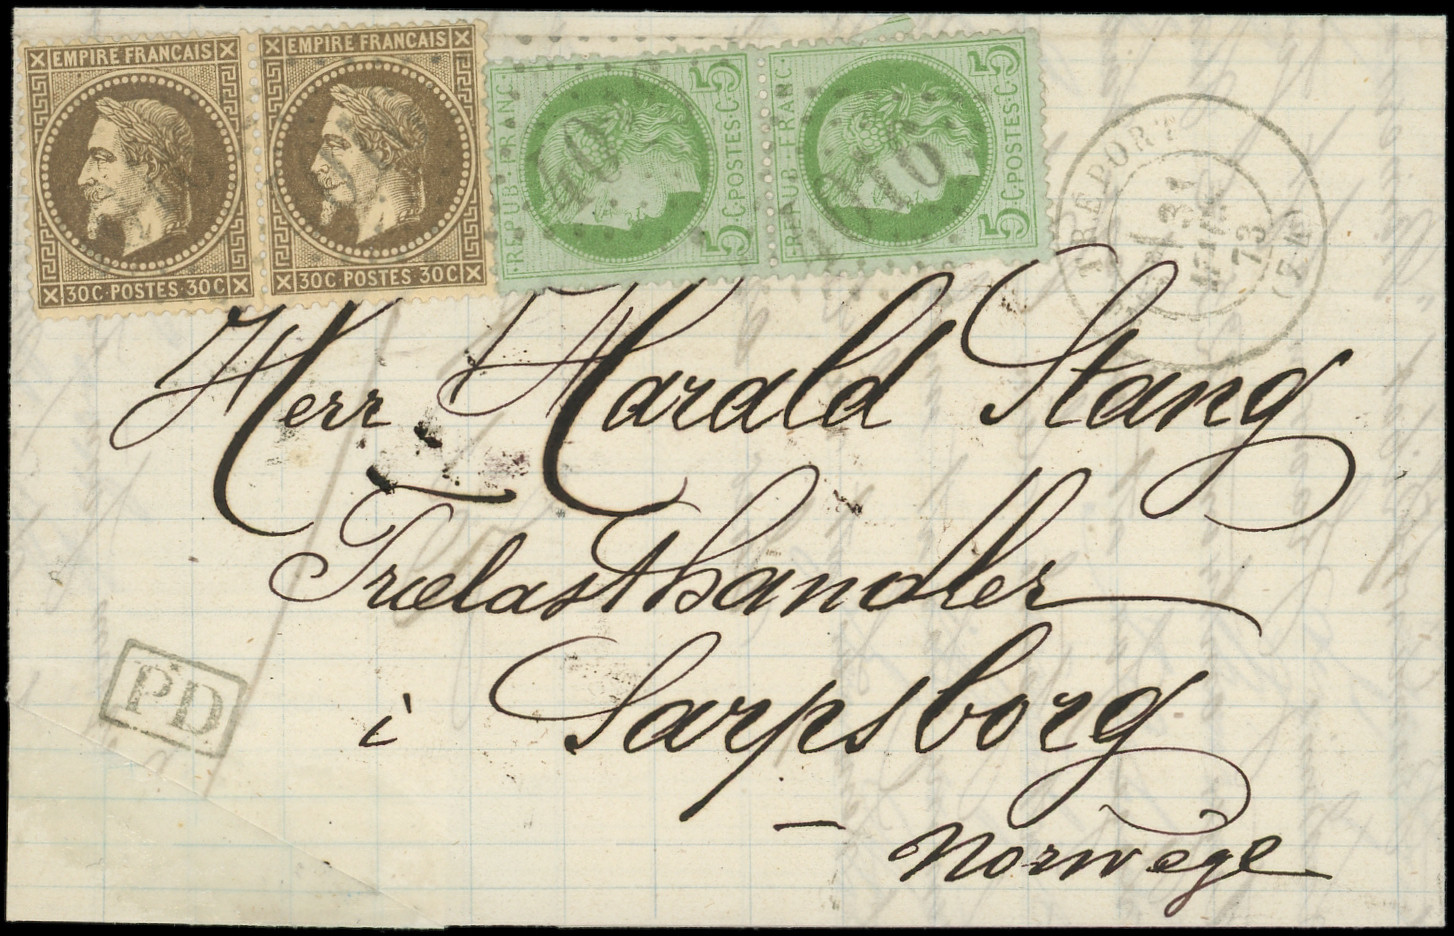 EMPIRE FRANCAIS
30C·POSTES·30C
EMPIRE FRANCAIS
30C·POSTES·30C
REPUB·FRANC·
5 C·POSTES·C 5
REPUB·FRANC·
5 C·POSTES·C 5
4016
TREPORT
31
73
Herr Harald Stang
Trælasthandler
i Sarpsborg
Norwège
PD